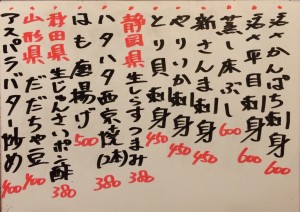 活〆かんぱち刺身 600
活〆平目刺身 600
蒸し床ぶし 600
新さんま刺身 450
やりいか刺身 450
やり貝刺身 450
静岡県 生しらすつまみ 380
ハタハタ西京焼(2本) 380
はも唐揚げ 500
秋田県 生じゅんさいポン酢 380
山形県 だだちゃ豆 400
アスパラバター炒め 400